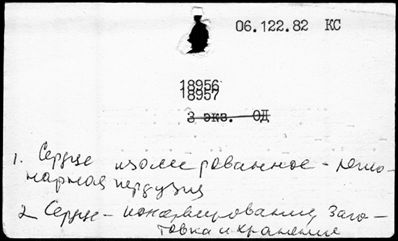 06.122.82 КС
18956
18957
3 экз. ОД
1. Сердце изолированное - легочно-
нарная перфузия
2 Сердце - консервирование, заго-
товка и хранение